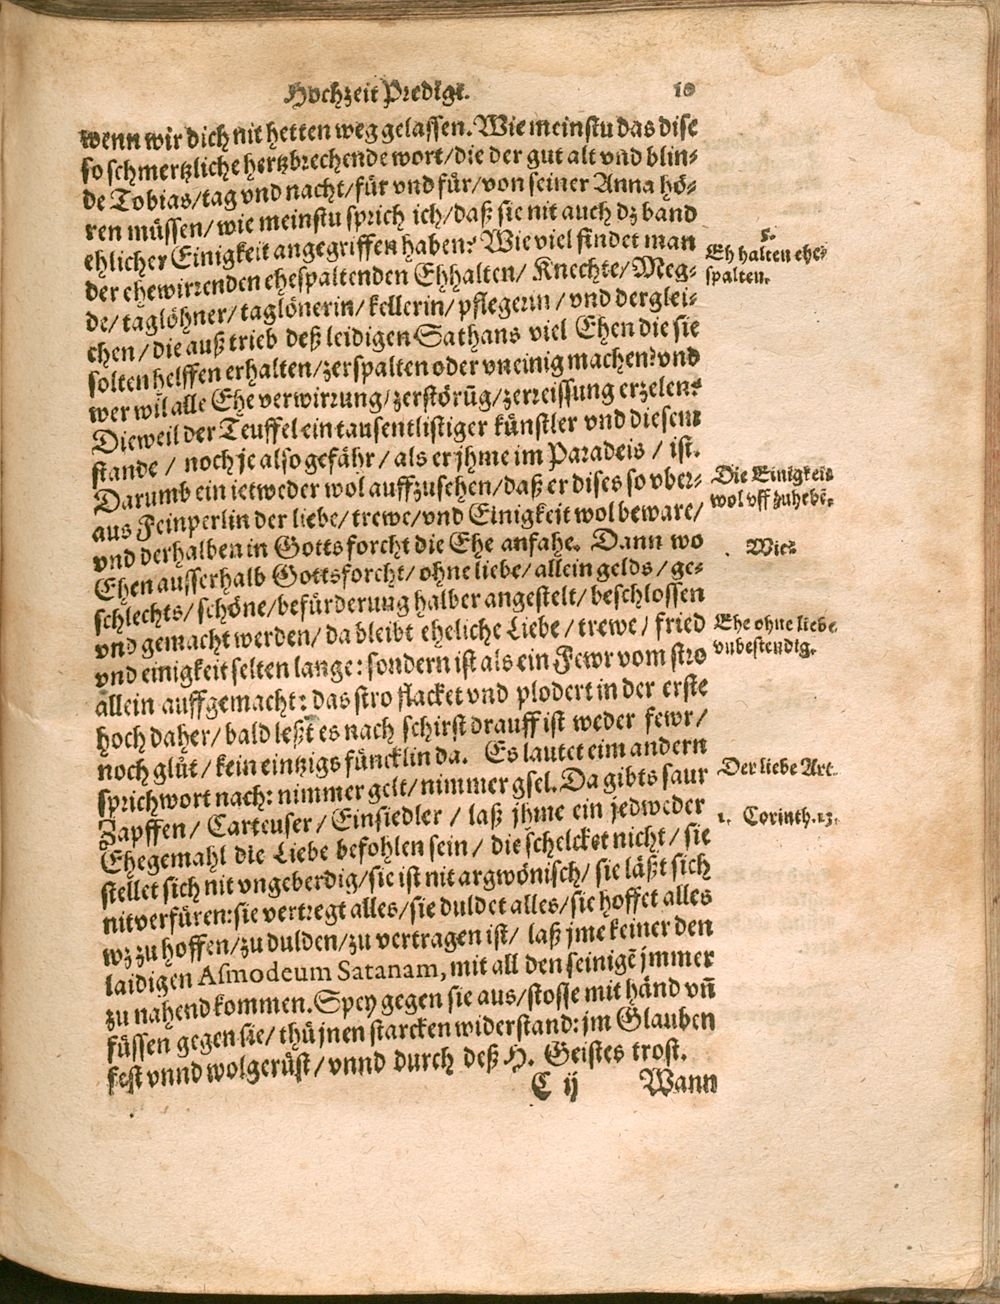 Hochzeit Predigt. 10
wenn wir dich nit hetten weggelassen. Wie meinstu das dise
so schmertzliche hertzbrechende wort/die der gut alt vnd blin-
de Tobias/tag vnd nacht/für vnd für/von seiner Anna hö-
ren müssen/wie meinstu sprich ich/daß sie nit auch dz band
ehlicher Einigkeit angegriffen haben? Wie viel findet man
5.
Ehhalten ehe-
spalten.
der ehewirrenden ehespaltenden Ehhalten/ Knechte/Meg-
de/taglöhner/taglönerin/kellerin/pflegerin/vnd derglei-
chen/die auß trieb deß leidigen Sathans viel Ehen die sie
solten helffen erhalten/zerspalten oder vneinig machen? vnd
wer wil alle Ehe verwirrung/zerstörũg/zerreissung erzelen?
Dieweil der Teuffel ein tausentlistiger künstler vnd diesem
stande / noch je also gefähr / als er jhme im Paradeis / ist.
Darumb ein ietweder wol auffzusehen/daß er dises so vber-
Die Einigkeit
wol vffzuhebẽ.
aus Feinperlin der liebe/trewe/vnd Einigkeit wol beware/
vnd derhalben in Gotts forcht die Ehe anfahe. Dann wo
Wie?
Ehen ausserhalb Gottsforcht/ohne liebe/allein gelds/ge-
schlechts/schöne/befürderung halber angestelt/beschlossen
vnd gemacht werden/da bleibt eheliche Liebe/trewe/fried
Ehe ohne liebe
vnbestendig.
vnd einigkeit selten lange: sondern ist als ein Fewr vom stro
allein auffgemacht: das stro flacket vnd plodert in der erste
hoch daher/bald leßt es nach schirst drauff ist weder fewr/
noch glüt/kein eintzigs füncklin da. Es lautet eim andern
sprichwort nach: nimmer gelt/nimmer gsel. Da gibts saur
Der liebe Art.
Zapffen/ Carteuser/Einsiedler / laß jhme ein jedweder
1. Corinth. 13.
Ehegemahl die Liebe befohlen sein/ die schelcket nicht/sie
stellet sich nit vngeberdig/sie ist nit argwönisch/sie läßt sich
nit verfüren: sie vertregt alles/sie duldet alles/sie hoffet alles
wz zu hoffen/zu dulden/zu vertragen ist/ laß jme keiner den
laidigen Asmodeum Satanam, mit all den seinigẽ jmmer
zu nahend kommen. Spey gegen sie aus/stosse mit händ vñ
füssen gegen sie/thü jnen starcken widerstand: jm Glauben
fest vnnd wolgerüst/vnnd durch deß H. Geistes trost.
C ij Wann